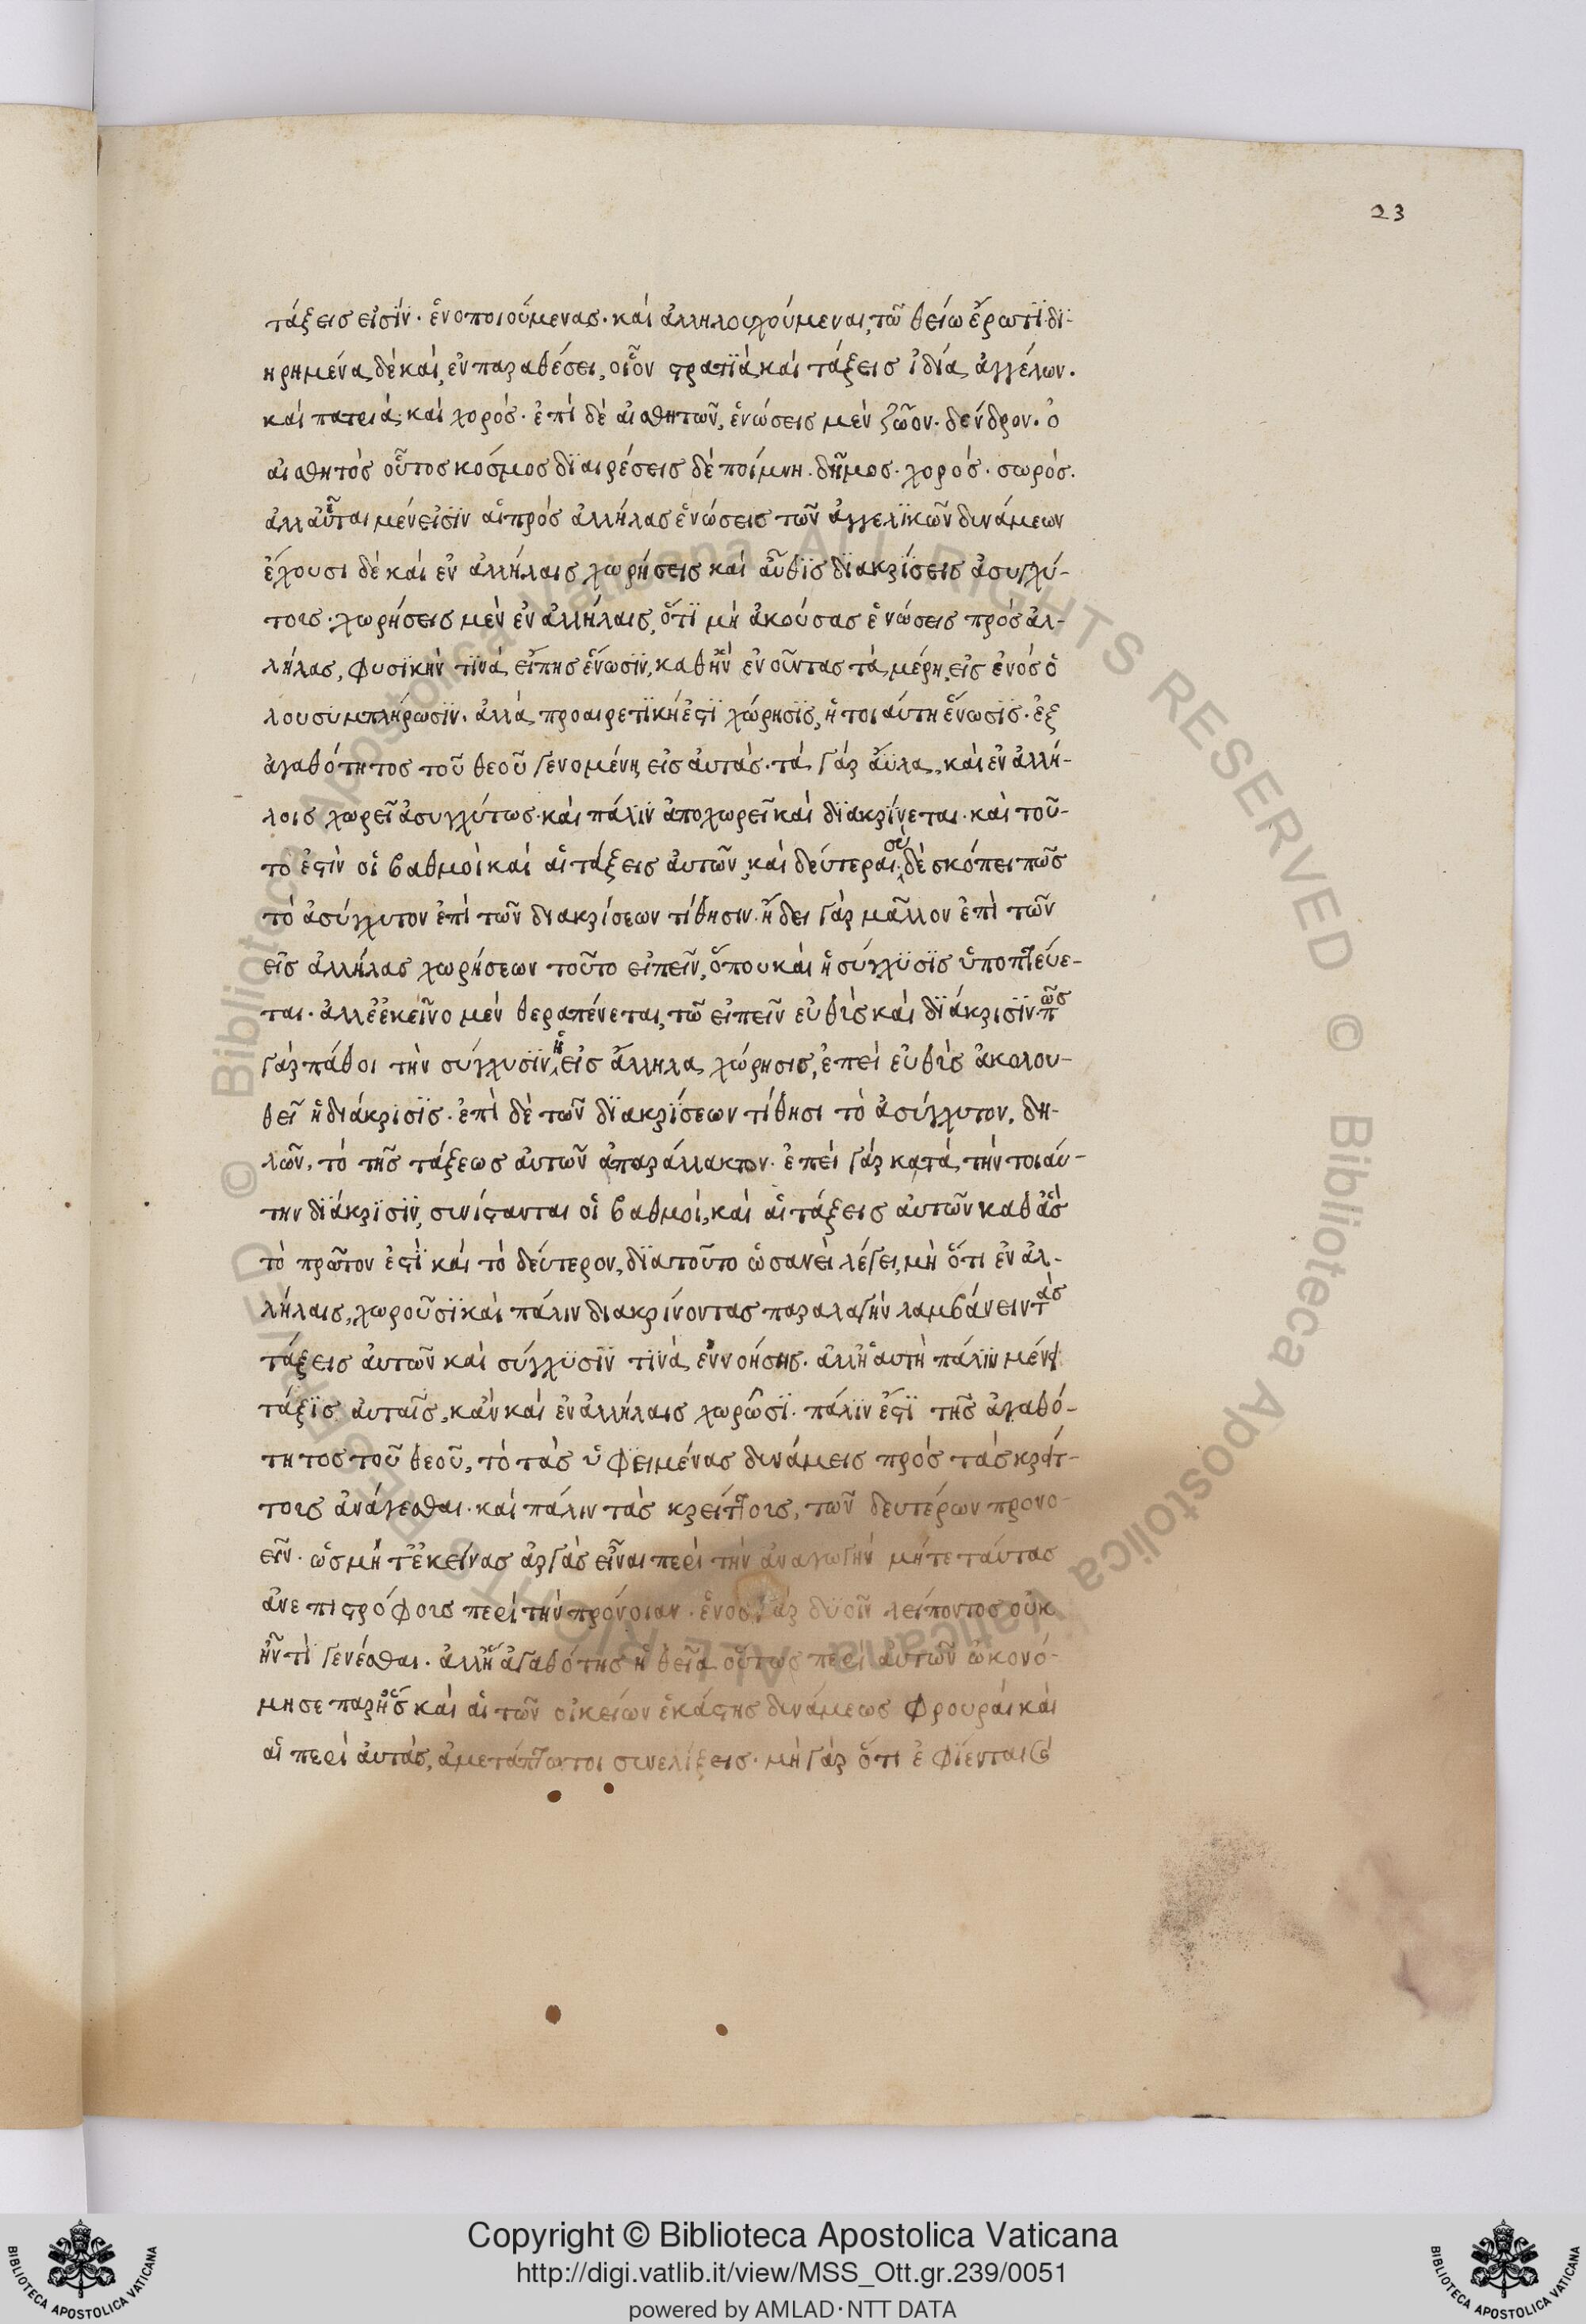 23
τάξεισ εἰσΐν· ἑνοποιούμενας· καὶ ἀλληλουχούμεναι, τῶ θείω ἔρωτϊ· δϊ-
ηρημένα δὲ καὶ, ἐν παραθέσει, οἷον ςρατϊὰ καὶ τάξεισ ἰδία ἀγγέλων.
καὶ πατριὰ· καὶ χορός· ἐπὶ δὲ αἰσθητῶν, ἑνώσεισ μὲν ζῶον· δένδρον· ὁ
αἰσθητὸς οὗτοσ κόσμοσ δϊαιρέσεισ δὲ ποίμνη· δῆμοσ· χορός· σωρός.
ἀλλ αὗται μέν εἰσϊν αἱ πρὸς ἀλλήλασ ἑνώσεισ τῶν ἀγγελϊκῶν δυνάμεων
ἔχουσι δὲ καὶ ἐν ἀλλήλαισ χωρήσεισ καὶ αὖθϊς δϊακρϊσεισ ἀσυγχύ-
τουσ· χωρήσεισ μὲν ἐν ἀλλήλαισ, ὅτϊ μὴ ἀκούσασ ἑνώσεισ πρὸς ἀλ-
λήλασ, φυσϊκὴν τϊνὰ εἴπησ ἕνωσϊν, καθ ἣν ἑνοῦντασ τὰ μέρη, εἰσ ἑνός ὅ
λου συμπλήρωσϊν· ἀλλὰ προαιρετϊκή ἐςϊ χώρησϊς, ἡ τοιαύτη ἕνωσϊς· ἐξ
ἀγαθότητοσ τοῦ θεοῦ γενομένη εἰσ ἀυτάς· τὰ γὰρ ἄϋλα, καὶ ἐν ἀλλή-
λοισ χωρεῖ ἀσυγχύτωσ· καὶ πάλϊν ἀποχωρεῖ καὶ δϊακρϊνεται· καὶ τοῦ-
το ἐςὶν οἱ βαθμοὶ καὶ αἱ τάξεισ ἀυτῶν, καὶ δεύτεραι· σὺ δὲ σκόπει πῶσ
τὸ ἀσύγχυτον ἐπὶ τῶν διακρίσεων τίθησιν· ἤδει γὰρ μᾶλλον ἐπὶ τῶν
εἰς ἀλλήλασ χωρήσεων τοῦτο εἰπεῖν, ὅπου καὶ ἡ σύγχϋσϊς ὑποπτεύε-
ται· ἀλλ ἐκεῖνο μὲν θεραπέυεται, τῶ εἰπεῖν εὐθὺς καὶ δϊάκρισϊν· πῶσ
γὰρ πάθοι τὴν σύγχυσϊν ἡ εἰσ ἄλληλα χώρησισ, ἐπεὶ εὐθὺς ἀκολου-
θεῖ ἡ διάκρισϊς· ἐπὶ δὲ τῶν δϊακρϊσεων τίθησι τὸ ἀσύγχυτον, δη-
λῶν, τὸ τῆς τάξεωσ ἀυτῶν ἀπαράλλακτον· ἐπεὶ γὰρ κατὰ τὴν τοιάυ-
την δϊάκρϊσϊν, συνίςανται οἱ βαθμοὶ, καὶ αἱ τάξεισ ἀυτῶν καθ ἃσ
τὸ πρῶτον ἐςϊ καὶ τὸ δεύτερον, δϊατοῦτο ὡσανεὶ λέγει, μὴ ὅτι ἐν ἀλ-
λήλαισ, χωροῦσϊ καὶ πάλιν διακρίνοντασ παραλαγὴν λαμβάνειν τὰσ
τάξεισ ἀυτῶν καὶ σύγχϋσϊν τϊνὰ ἐννοήσησ· ἀλλ ἡ ἀυτὴ πάλϊν μένει
τάξϊσ ἀυταῖς, κἂν καὶ ἐν ἀλλήλαισ χωρῶσϊ· πάλϊν ἐςϊ τῆς ἀγαθό-
τητοσ τοῦ θεοῦ, τὸ τὰς ὑφειμένασ δυνάμεισ πρὸς τὰς κρείτ-
τουσ ἀνάγεσθαι· καὶ πάλιν τὰς κρείττουσ, τῶν δευτέρων προνο-
εῖν· ὡς μήτ ἐκείνασ ἀργὰς εἶναι περὶ τὴν ἀναγωγὴν μήτε ταύτασ
ἀνεπιςρόφουσ περὶ τὴν πρόνοιαν· ἑνοσ γὰρ δϋοῖν λείποντοσ οὐκ
ἦν τὶ γενέσθαι· ἀλλ ἡ ἀγαθότησ ἡ θεῖα οὕτωσ περὶ ἀυτῶν ὠκονό-
μησε παρ ἧς καὶ αἱ τῶν οἰκείων ἑκάςησ δυνάμεωσ φρουραὶ καὶ
αἱ περὶ ἀυτάς, ἀμετάπτωτοι συνελίξεισ· μὴ γὰρ ὅτι ἐφϊενται
Copyright © Biblioteca Apostolica Vaticana
http://digi.vatlib.it/view/MSS_Ott.gr.239/0051
powered by AMLAD·NTT DATA